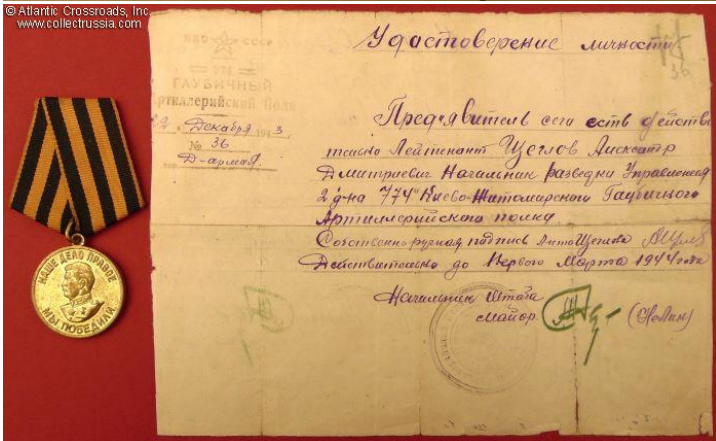 © Atlantic Crossroads, Inc.
www.collectrussia.com
НАШЕ ДЕЛО ПРАВОЕ
МЫ ПОБЕДИЛИ
НКО СССР
774
ГАУБИЧНЫЙ
Артиллерийский Полк
22 Декабря 1943
№ 36
Д-армая.
Удостоверение личности
36
Предявитель сего есть действи
тельно Лейтенант Щеглов Александр
Дмитриевич Начальник разведки Управления
2 д-на 774 Киево-Житомирского Гаубичного
Артиллерийского полка
Собственно-ручная подпись Щеглова
Действительно до Первого Марта 1944 года
Начальник Штаба
майор